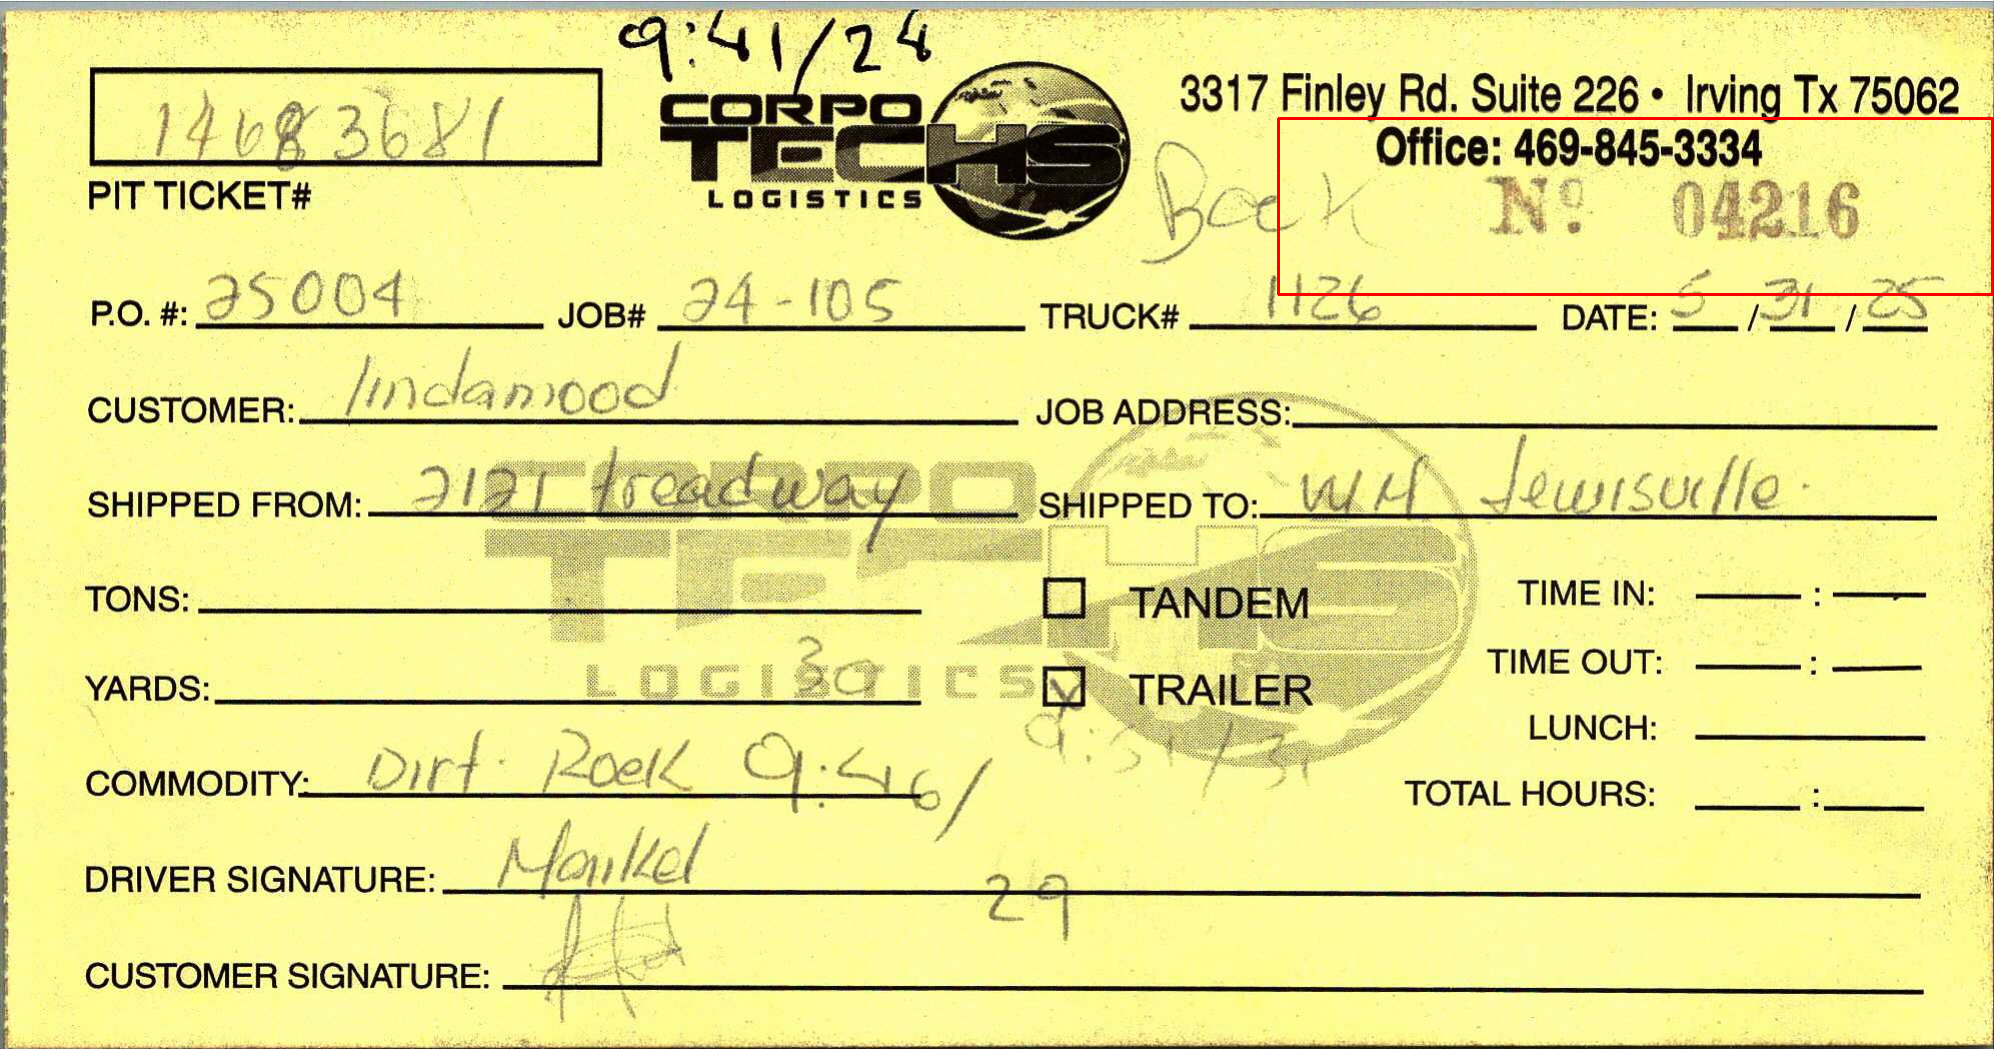 9:41/24
14683681
PIT TICKET#
CORPO
TECHS
LOGISTICS
3317 Finley Rd. Suite 226 • Irving Tx 75062
Office: 469-845-3334
Back
Nº 04216
P.O. #: 25004 JOB# 24-105 TRUCK# 1126 DATE: 5/31/25
CUSTOMER: lindamood JOB ADDRESS:
SHIPPED FROM: 2121 treadway SHIPPED TO: WM Lewisville.
CORPO
TECHS
LOGISTICS
TONS: TANDEM TIME IN: :
YARDS: 30 X TRAILER TIME OUT: :
9:31/31 LUNCH:
COMMODITY: Dirt. Rock 9:46/ TOTAL HOURS: :
29
DRIVER SIGNATURE: Maikel
CUSTOMER SIGNATURE: